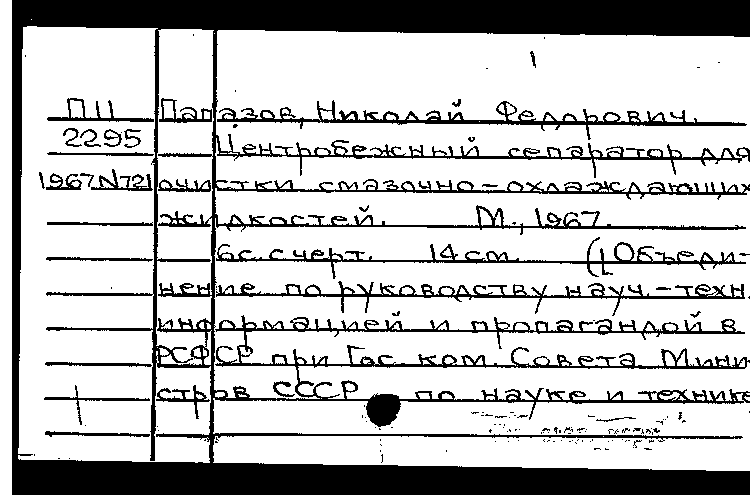 1
П11 Папазов, Николай Федорович.
2295 Центробежный сепаратор для
1967N721 очистки смазочно-охлаждающих
жидкостей. М., 1967.
6с. с черт. 14см. ([Объеди-
нение по руководству науч.-техн.
информацией и пропагандой в
РСФСР при Гос. ком. Совета Мини-
стров СССР по науке и технике